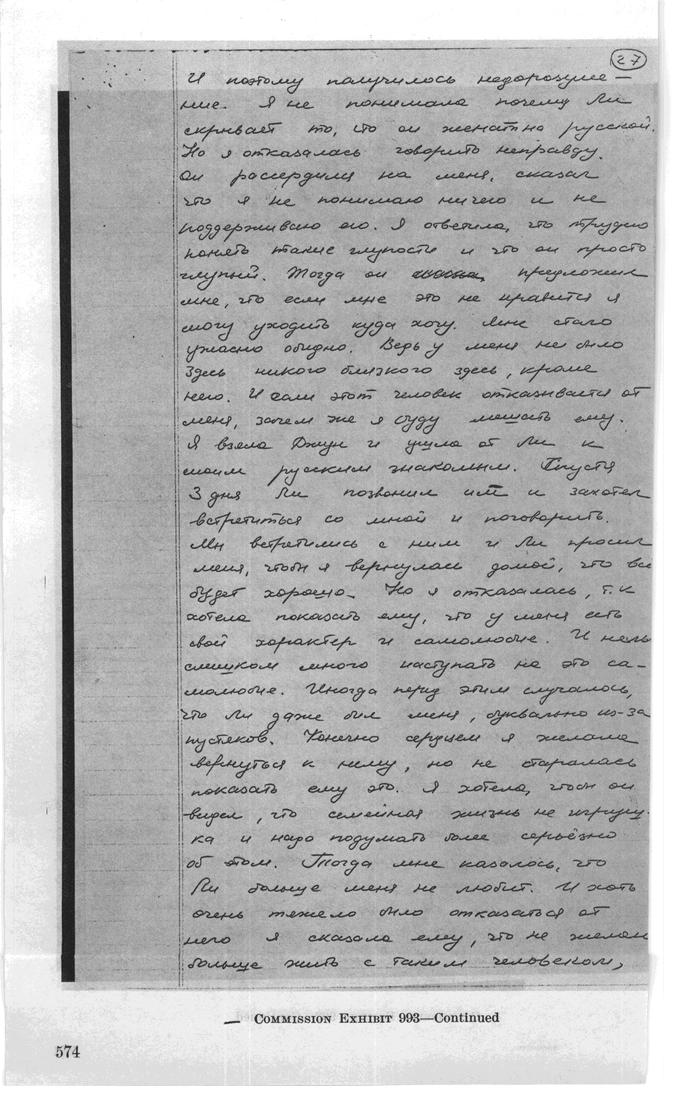 27
И поэтому получилось недоразуме-
ние. Я не понимала почему Ли
скрывает то, что он женат на русской.
Но я отказалась говорить неправду.
Он рассердился на меня, сказал
что я не понимаю ничего и не
поддерживаю его. Я ответила, что трудно
понять такие глупости и что он просто
глупый. Тогда он предложил
мне, что если мне это не нравится я
могу уходить куда хочу. Мне стало
ужасно обидно. Ведь у меня не было
здесь никого близкого здесь, кроме
него. И если этот человек отказывается от
меня, зачем же я буду мешать ему.
Я взяла Джун и ушла от Ли к
моим русским знакомым. Спустя
3 дня Ли позвонил и захотел
встретиться со мной и поговорить.
Мы встретились с ним и Ли просил
меня, чтобы я вернулась домой, что все
будет хорошо. Но я отказалась, т.к
хотела показать ему, что у меня есть
свой характер и самолюбие. И нель
слишком много наступать на это са-
молюбие. Иногда перед этим случалось,
что Ли даже бил меня, буквально из-за
пустяков. Конечно сердцем я желала
вернуться к нему, но не старалась
показать ему это. Я хотела, чтобы он
видел, что семейная жизнь не игруш-
ка и надо подумать более серьёзно
об этом. Тогда мне казалось, что
Ли больше меня не любит. И хоть
очень тяжело было отказаться от
него я сказала ему, что не желаю
больше жить с таким человеком,
COMMISSION EXHIBIT 993—Continued
574